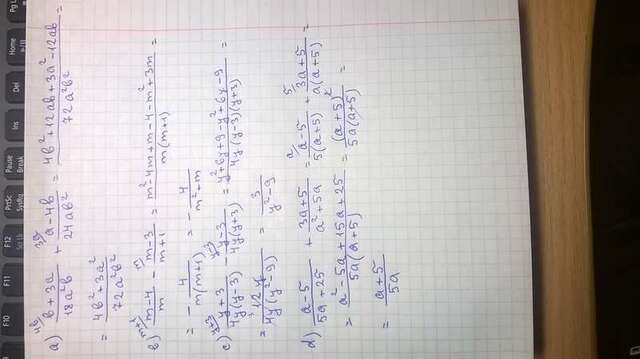 a) \frac{b+3a}{18a^2b}^{4b} + \frac{a-4b}{24ab^2}^{3a} = \frac{4b^2+12ab+3a^2-12ab}{72a^2b^2} =
= \frac{4b^2+3a^2}{72a^2b^2}
b) \frac{m-4}{m}^{m+1} - \frac{m-3}{m+1}^{m} = \frac{m^2-4m+m-4-m^2+3m}{m(m+1)} =
= -\frac{4}{m(m+1)} = -\frac{4}{m^2+m}
c) \frac{y+3}{4y(y-3)}^{y+3} - \frac{y-3}{4y(y+3)}^{y-3} = \frac{y^2+6y+9-y^2+6y-9}{4y(y-3)(y+3)} =
= \frac{12y}{4y(y^2-9)} = \frac{3}{y^2-9}
d) \frac{a-5}{5a+25} + \frac{3a+5}{a^2+5a} = \frac{a-5}{5(a+5)}^{a} + \frac{3a+5}{a(a+5)}^{5} =
= \frac{a^2-5a+15a+25}{5a(a+5)} = \frac{(a+5)^2}{5a(a+5)} =
= \frac{a+5}{5a}
Pause
Break
PrtSc
SysRq
Ins
Del
Home
F10
F11
F12